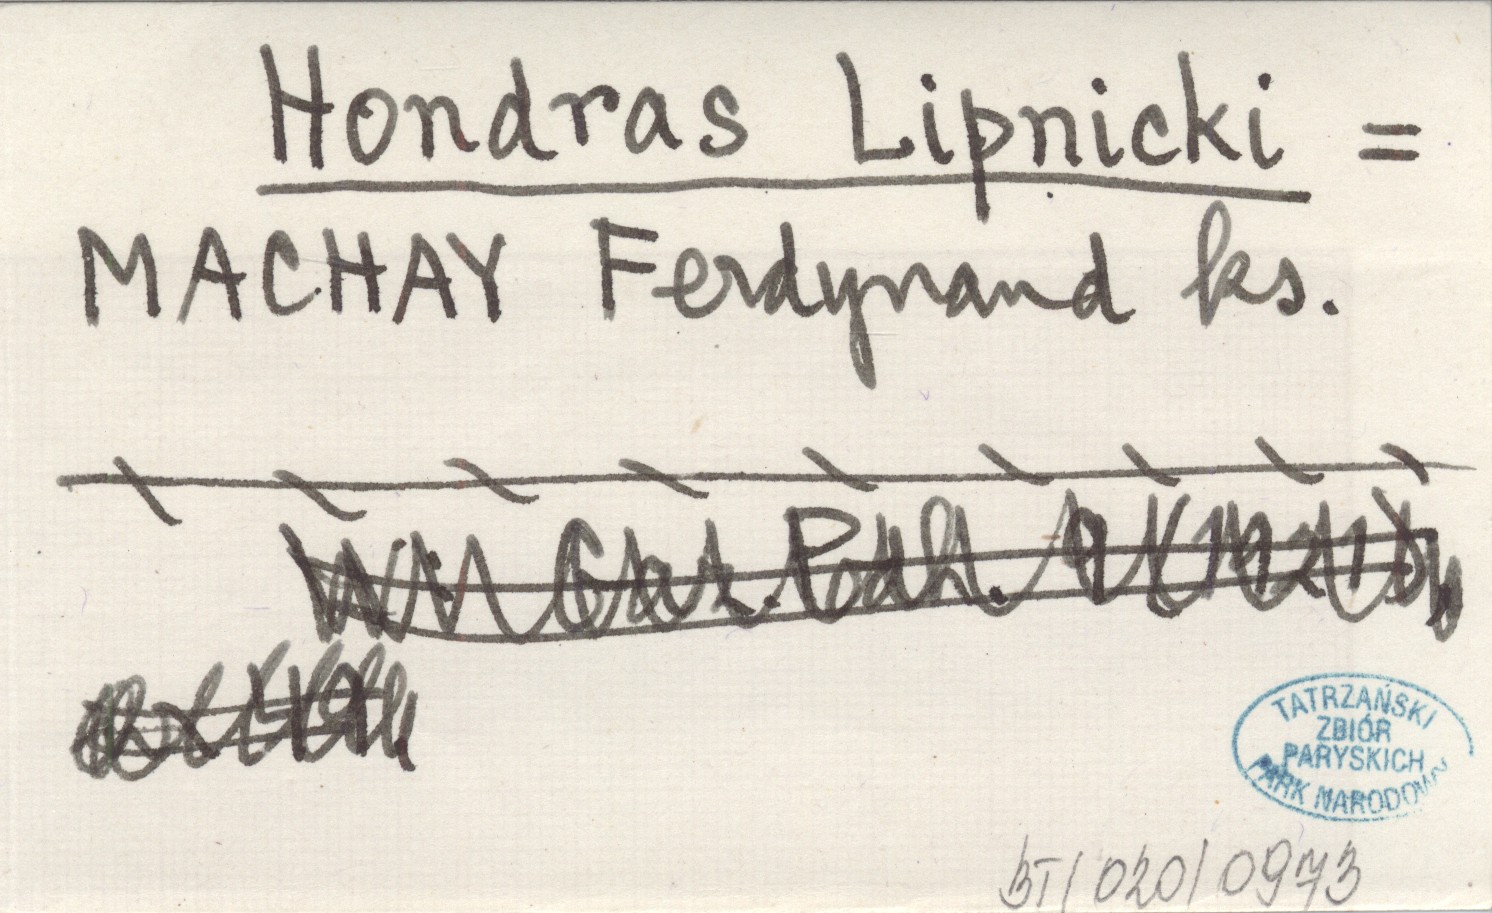 Hondras Lipnicki =
MACHAY Ferdynand ks.
Podh.
TATRZAŃSKI
ZBIÓR
PARYSKICH
PARK NARODOWY
BT/020/0973